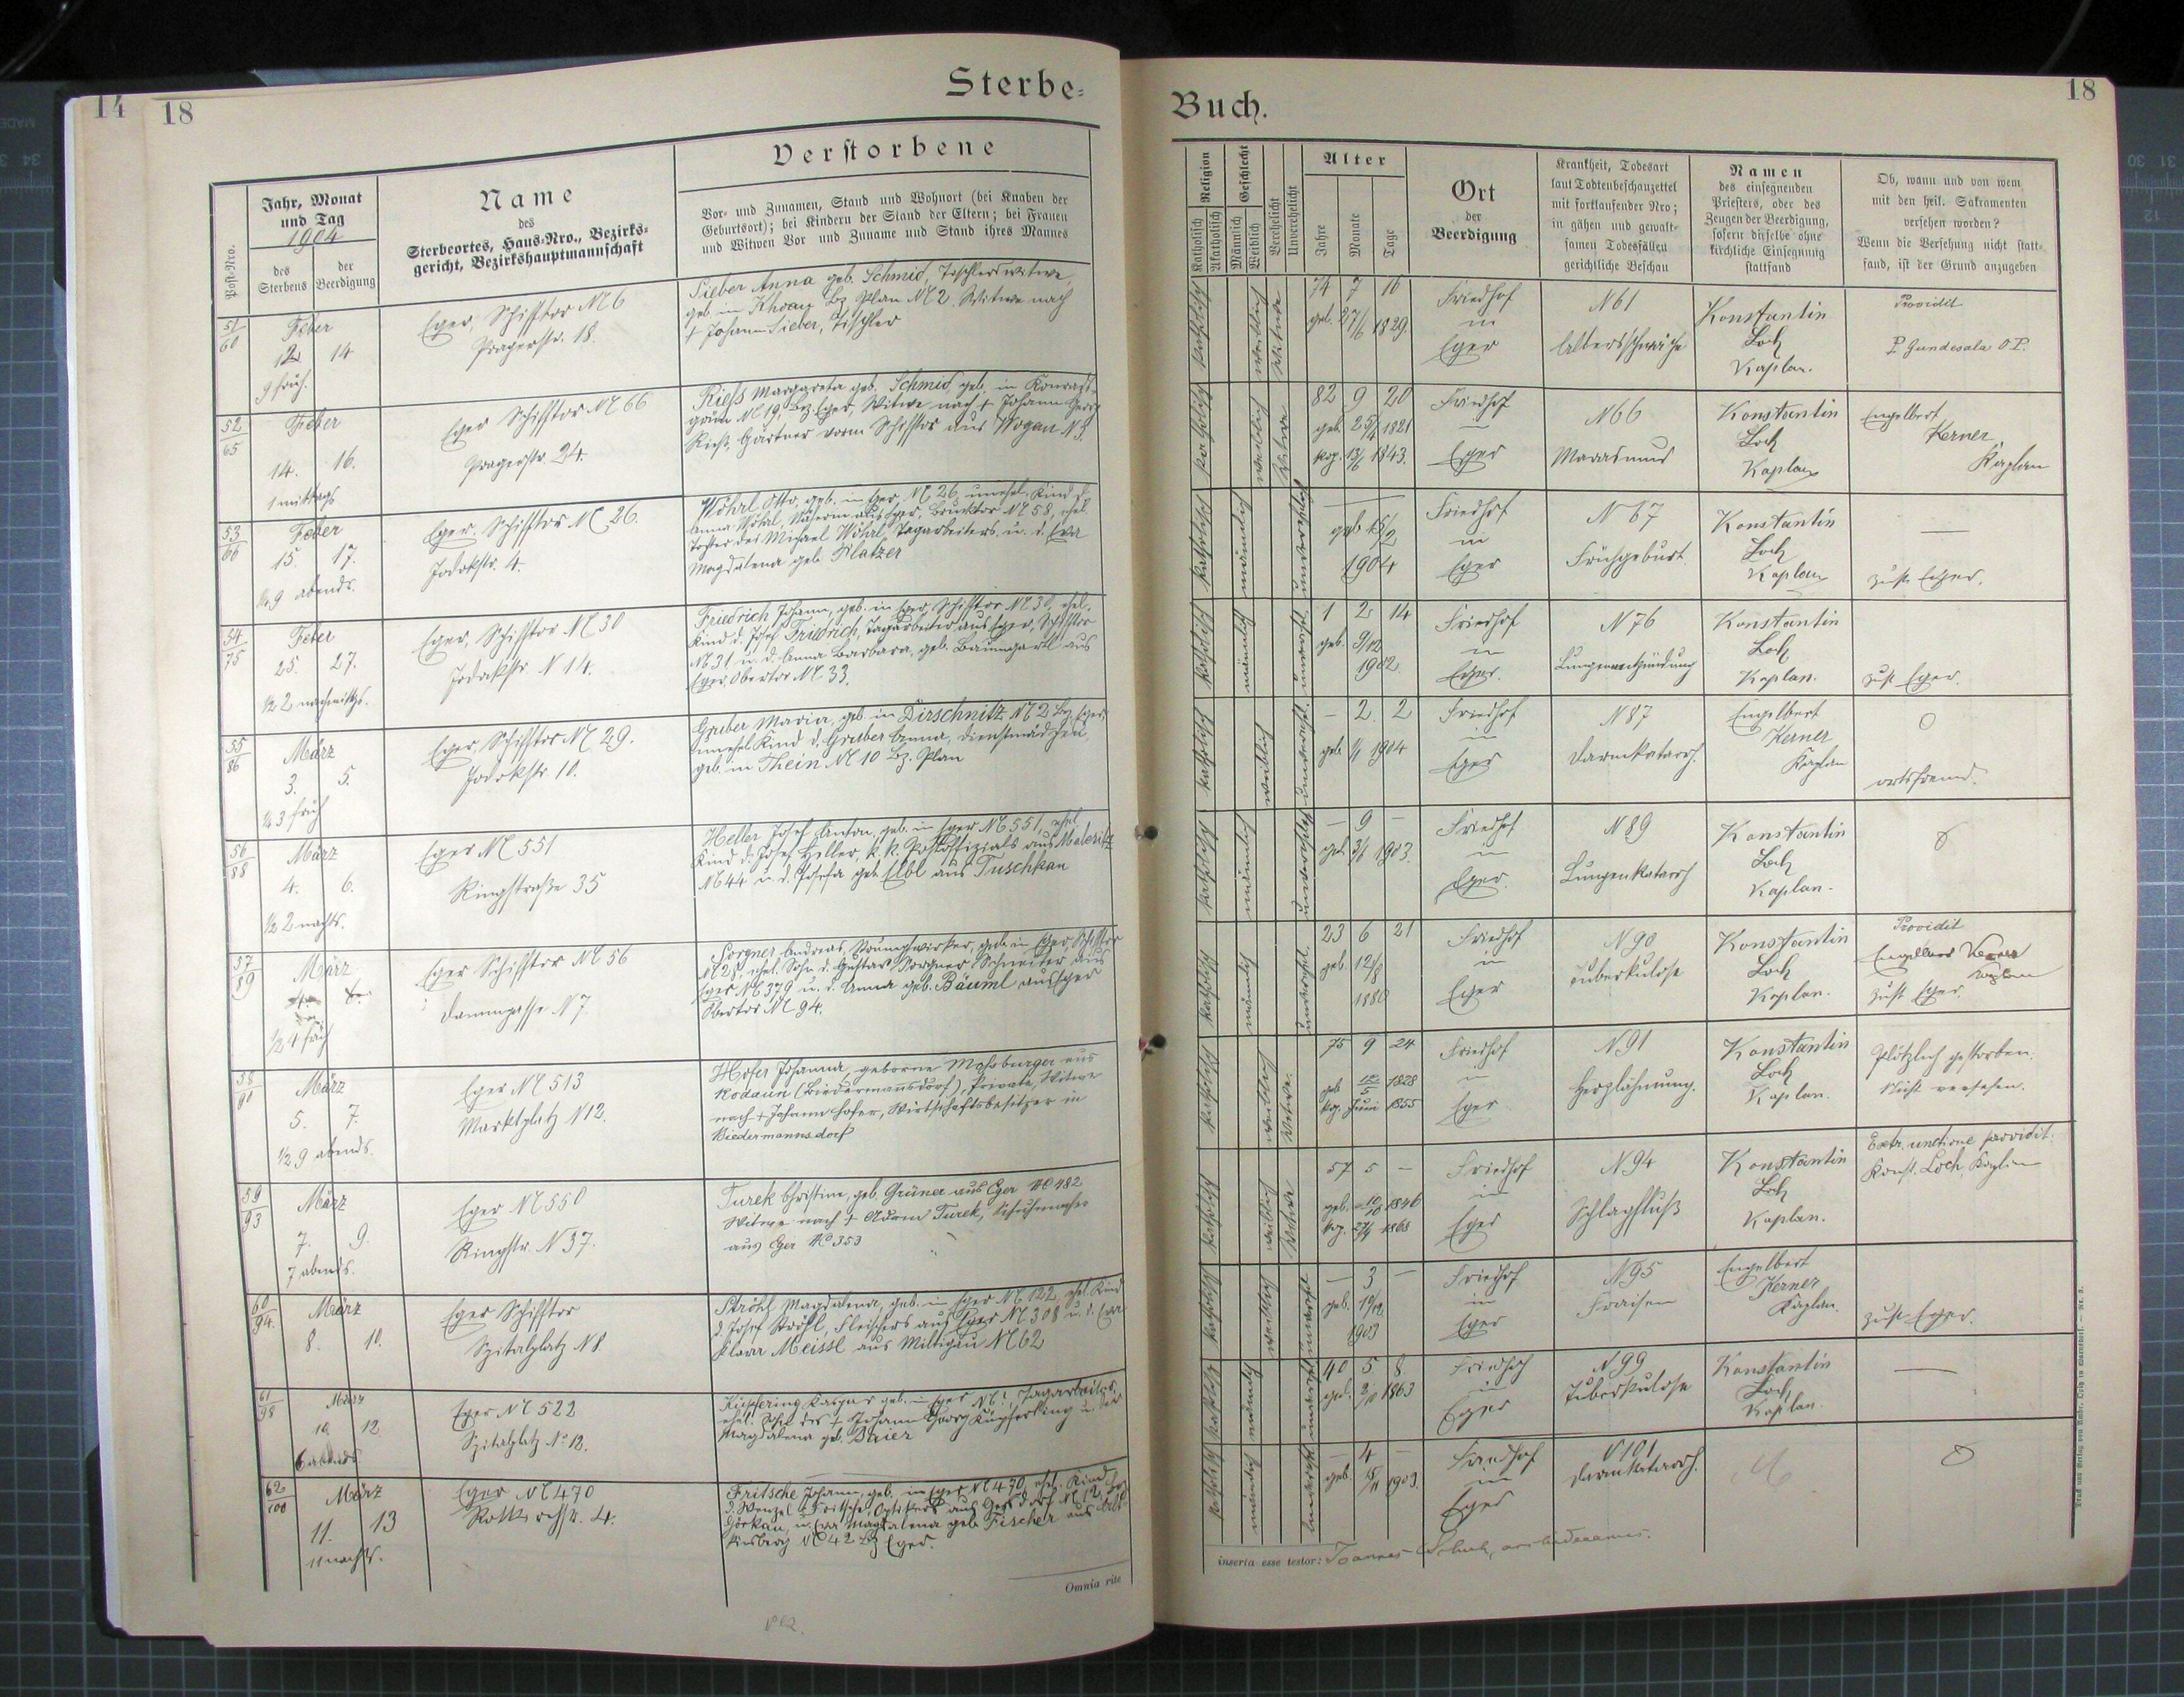 14
18
Sterbe-
Post-Nro.
Jahr, Monat
und Tag
1904
des
Sterbens
der
Beerdigung
Name
des
Sterbeortes, Haus-Nro., Bezirks-
gericht, Bezirkshauptmannschaft
Verstorbene
Vor- und Zunamen, Stand und Wohnort (bei Knaben der
Geburtsort); bei Kindern der Stand der Eltern; bei Frauen
und Witwen Vor und Zuname und Stand ihres Mannes
51
60
Feber
12 14
9 früh.
Eger, Schifftor № 6
Pragerstr. 18.
Sieber Anna geb. Schmid, Tischlerswitwe,
geb. in Khoau Bz. Plan № 2. Witwe nach
† Johann Sieber, Tischler
52
65
Feber
14. 16.
1 mittags
Eger Schifftor № 66
Pragerstr. 24.
Riess Margareta geb. Schmid geb. in Konrads-
grün № 19, Bz. Eger, Witwe nach † Johann
Riess, Gärtner vorm Schifftor aus
53
66
Feber
15. 17.
9 abends.
Eger. Schifftor № 26.
Jodokstr. 4.
Wöhrl Otto, geb. in Eger, № 26, unehel. Kind d.
Anna Wöhrl, Näherin aus Eger, Brucktor № 58, ehel.
Tochter des Michael Wöhrl, Tagarbeiters u. d. Eva
Magdalena geb. Platzer
54
75
Feber
25. 27.
½ 2 nachmittgs.
Eger, Schifftor № 30
Jodokstr. N 14.
Friedrich Johann, geb. in Eger, Schifftor № 30, ehel.
Kind d. Josef Friedrich, Tagarbeiter aus Eger, Schifftor
№ 31 u. d. Anna Barbara, geb. Baumgartl aus
Eger, Obertor № 33.
55
86
März
3. 5.
¼ 3 früh
Eger Schifftor № 29.
Jodokstr. 10.
Gruber Maria, geb. in Dirschnitz № 2 Bz. Eger,
unehel. Kind d. Gruber Anna, Dienstmädchen,
geb. in Thein № 10 Bz. Plan
56
88
März
4. 6.
½ 2 nachts.
Eger № 551
Ringstraße 35
Heller Josef Anton, geb. in Eger № 551, ehel.
Kind d. Josef Heller, k. k. Postoffizials aus Malesitz
№ 44 u. d. Josefa geb. Elbl aus Tuschkau
57
89
März
½ 4 früh
Eger Schifftor № 56
Dammgasse N 7.
Sorgner Andreas, Strumpfwirker, geb. in Eger, Schifftor
№ 28, ehel. Sohn d. Gustav Sorgner Schneider aus
Eger № 379 u. d. Anna geb. Bäuml aus Eger
Obertor № 94.
58
90
März
5. 7.
½ 9 abends.
Eger № 513
Marktplatz N 12.
Hofer Johanna, geborne Mossburger aus
Rodaun (Biedermannsdorf), Private, Witwe
nach † Johann Hofer, Wirtschaftsbesitzer in
Biedermannsdorf
59
93
März
7. 9.
7 abends.
Eger № 550
Ringstr. N 37.
Turek Christine, geb. Grüner aus Eger № 482
Witwe nach † Adam Turek, Schuhmacher
aus Eger № 353
60
94.
März
8. 10.
Eger Schifftor
Spitalplatz N 8.
Ströhl Magdalena, geb. in Eger № 122, ehel. Kind
d. Josef Ströhl, Fleischers aus Eger № 308 u. d. Eva
Klara Meissl aus Miltigau № 62
61
98
März
10. 12.
6 abends
Eger № 522
Spitalplatz No 12.
Küpferling Kaspar geb. in Eger №!, Tagarbeiter,
ehel. Sohn des † Johann Georg Küpferling u. der
Magdalena geb. Baier
62
100
März
11. 13
11 nachts.
Eger № 470
4.
Fritsche Johann, geb. in Eger № 470, ehel. Kind
d. Wenzel Fritsche, Optikers aus Gersdorf № 12, Bz.
Görkau, u. Eva Magdalena geb. Fischer aus Alt-
Kinsberg № 42 Bz. Eger.
Omnia rite
Buch.
18
Religion
Katholisch
Akatholisch
Geschlecht
Männlich
Weiblich
Verehelicht
Unverehelicht
Alter
Jahre
Monate
Tage
Ort
der
Beerdigung
Krankheit, Todesart
laut Todtenbeschauzettel
mit fortlaufender Nro;
in gähen und gewalt-
samen Todesfällen
gerichtliche Beschau
Namen
des einsegnenden
Priesters, oder des
Zeugen der Beerdigung,
sofern dieselbe ohne
kirchliche Einsegnung
stattfand
Ob, wann und von wem
mit den heil. Sakramenten
versehen worden?
Wenn die Versehung nicht statt-
fand, ist der Grund anzugeben
katholisch weiblich Witwe
74 7 16
geb. 27/6 1829.
Friedhof
in
Eger
N 61
Altersschwäche
Konstantin
Loch
Kaplan.
Providit
P. Gundesala O.P.
katholisch weiblich Witwe
82 9 20
geb. 25/4 1821
kop. 13/6 1843.
Friedhof
Eger
N 66
Marasmus
Konstantin
Loch
Kaplan
Engelbert
Kerner
Kaplan
katholisch männlich unverehelicht
geb. 15/2
1904
Friedhof
in
Eger
N 67
Frühgeburt.
Konstantin
Loch
Kaplan
zust. Eger.
katholisch männlich unverehel.
1 2 14
geb. 9/12
1902.
Friedhof
in
Eger.
N 76
Lungenentzündung
Konstantin
Loch
Kaplan.
zust. Eger.
katholisch weiblich unverehel.
— 2. 2
geb. 1/1 1904
Friedhof
in
Eger
N 87
Darmkatarrh.
Engelbert
Kerner
Kaplan
ortsfremd.
katholisch männlich unverehelicht
— 9 —
geb. 3/6 1903.
Friedhof
in
Eger.
N 89
Lungenkatarrh
Konstantin
Loch
Kaplan.
katholisch männlich unverehel.
23 6 21
geb. 12/8
1880
Friedhof
in
Eger
N 90
Tuberkulose
Konstantin
Loch
Kaplan.
Providit
Engelbert Kerner
Kaplan
zust. Eger.
katholisch weiblich Witwe.
75 9 24
geb. 12/5 1828
kop. Juni 1855
Friedhof
in
Eger
N 91
Herzlähmung.
Konstantin
Loch
Kaplan.
Plötzlich gestorben.
Nicht versehen.
katholisch weiblich Witwe
57 5 —
geb. 10/10 1846
kop. 27/4 1868
Friedhof
in
Eger
N 94
Schlagfluß
Konstantin
Loch
Kaplan.
Extr. unctione providit.
Konst. Loch, Kaplan
katholisch weiblich unverehel
— 3 —
geb. 10/12
1903
Friedhof
in
Eger
N 95
Fraisen
Engelbert
Kerner
Kaplan.
zust. Eger.
katholisch männlich unverehel
40 5 8
geb. 1863
Friedhof
in
Eger
N 99
Tuberkulose
Konstantin
Loch,
Kaplan.
katholisch männlich unverehel
— 4 —
geb. 1903.
Friedhof
in
Eger
N 101
Darmkatarrh.
inserta esse testor: Joannes